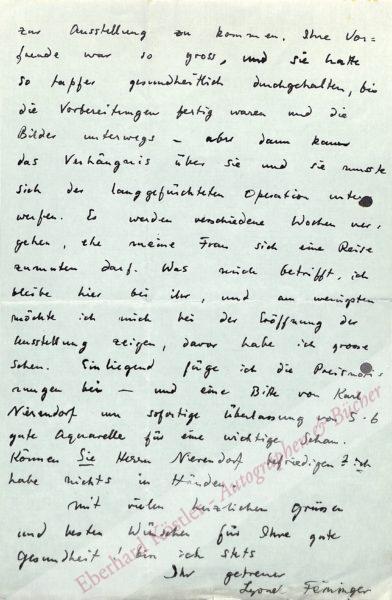 zur Ausstellung zu kommen. Ihre Vor=
freude war so gross, und sie hatte
so tapfer gesundheitlich durchgehalten, bis
die Vorbereitungen fertig waren und die
Bilder unterwegs – aber dann kam
das Verhängnis über sie und sie musste
sich der langgefürchteten Operation unter
werfen. Es werden verschiedene Wochen ver,
gehen, ehe meine Frau sich eine Reise
zumuten darf. Was mich betrifft, ich
bleibe hier bei ihr, und am wenigsten
möchte ich mich bei der Eröffnung der
Ausstellung zeigen, davor habe ich grosse
Scheu. Einliegend füge ich die Preisnotie
rungen bei – und eine Bitte von Karl
Nierendorf um sofortige Überlassung von 5-6
gute Aquarelle für eine wichtige Schau.
Können Sie Herrn Nierendorf befriedigen? ich
habe nichts in Händen.
Mit vielen herzlichen Grüssen
und besten Wünschen für Ihre gute
Gesundheit! bin ich stets
Ihr getreuer
Lyonel Feininger
Eberhard Köstler - Autographen & Bücher